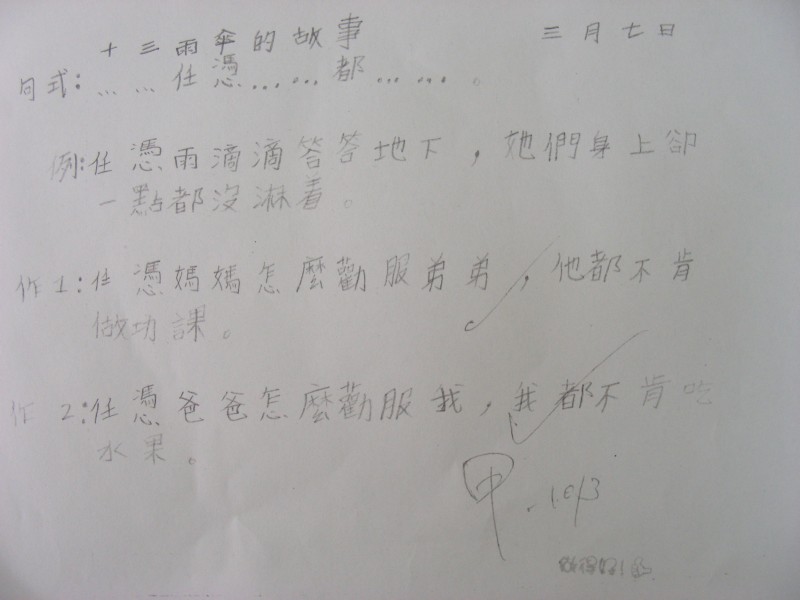 十三雨傘的故事 三月七日
句式:……任憑……都……。
例:任憑雨滴滴答答地下，她們身上卻
一點都沒淋着。
作1:任憑媽媽怎麼勸服弟弟，他都不肯
做功課。
作2:任憑爸爸怎麼勸服我，我都不肯吃
水果。
甲.10/3